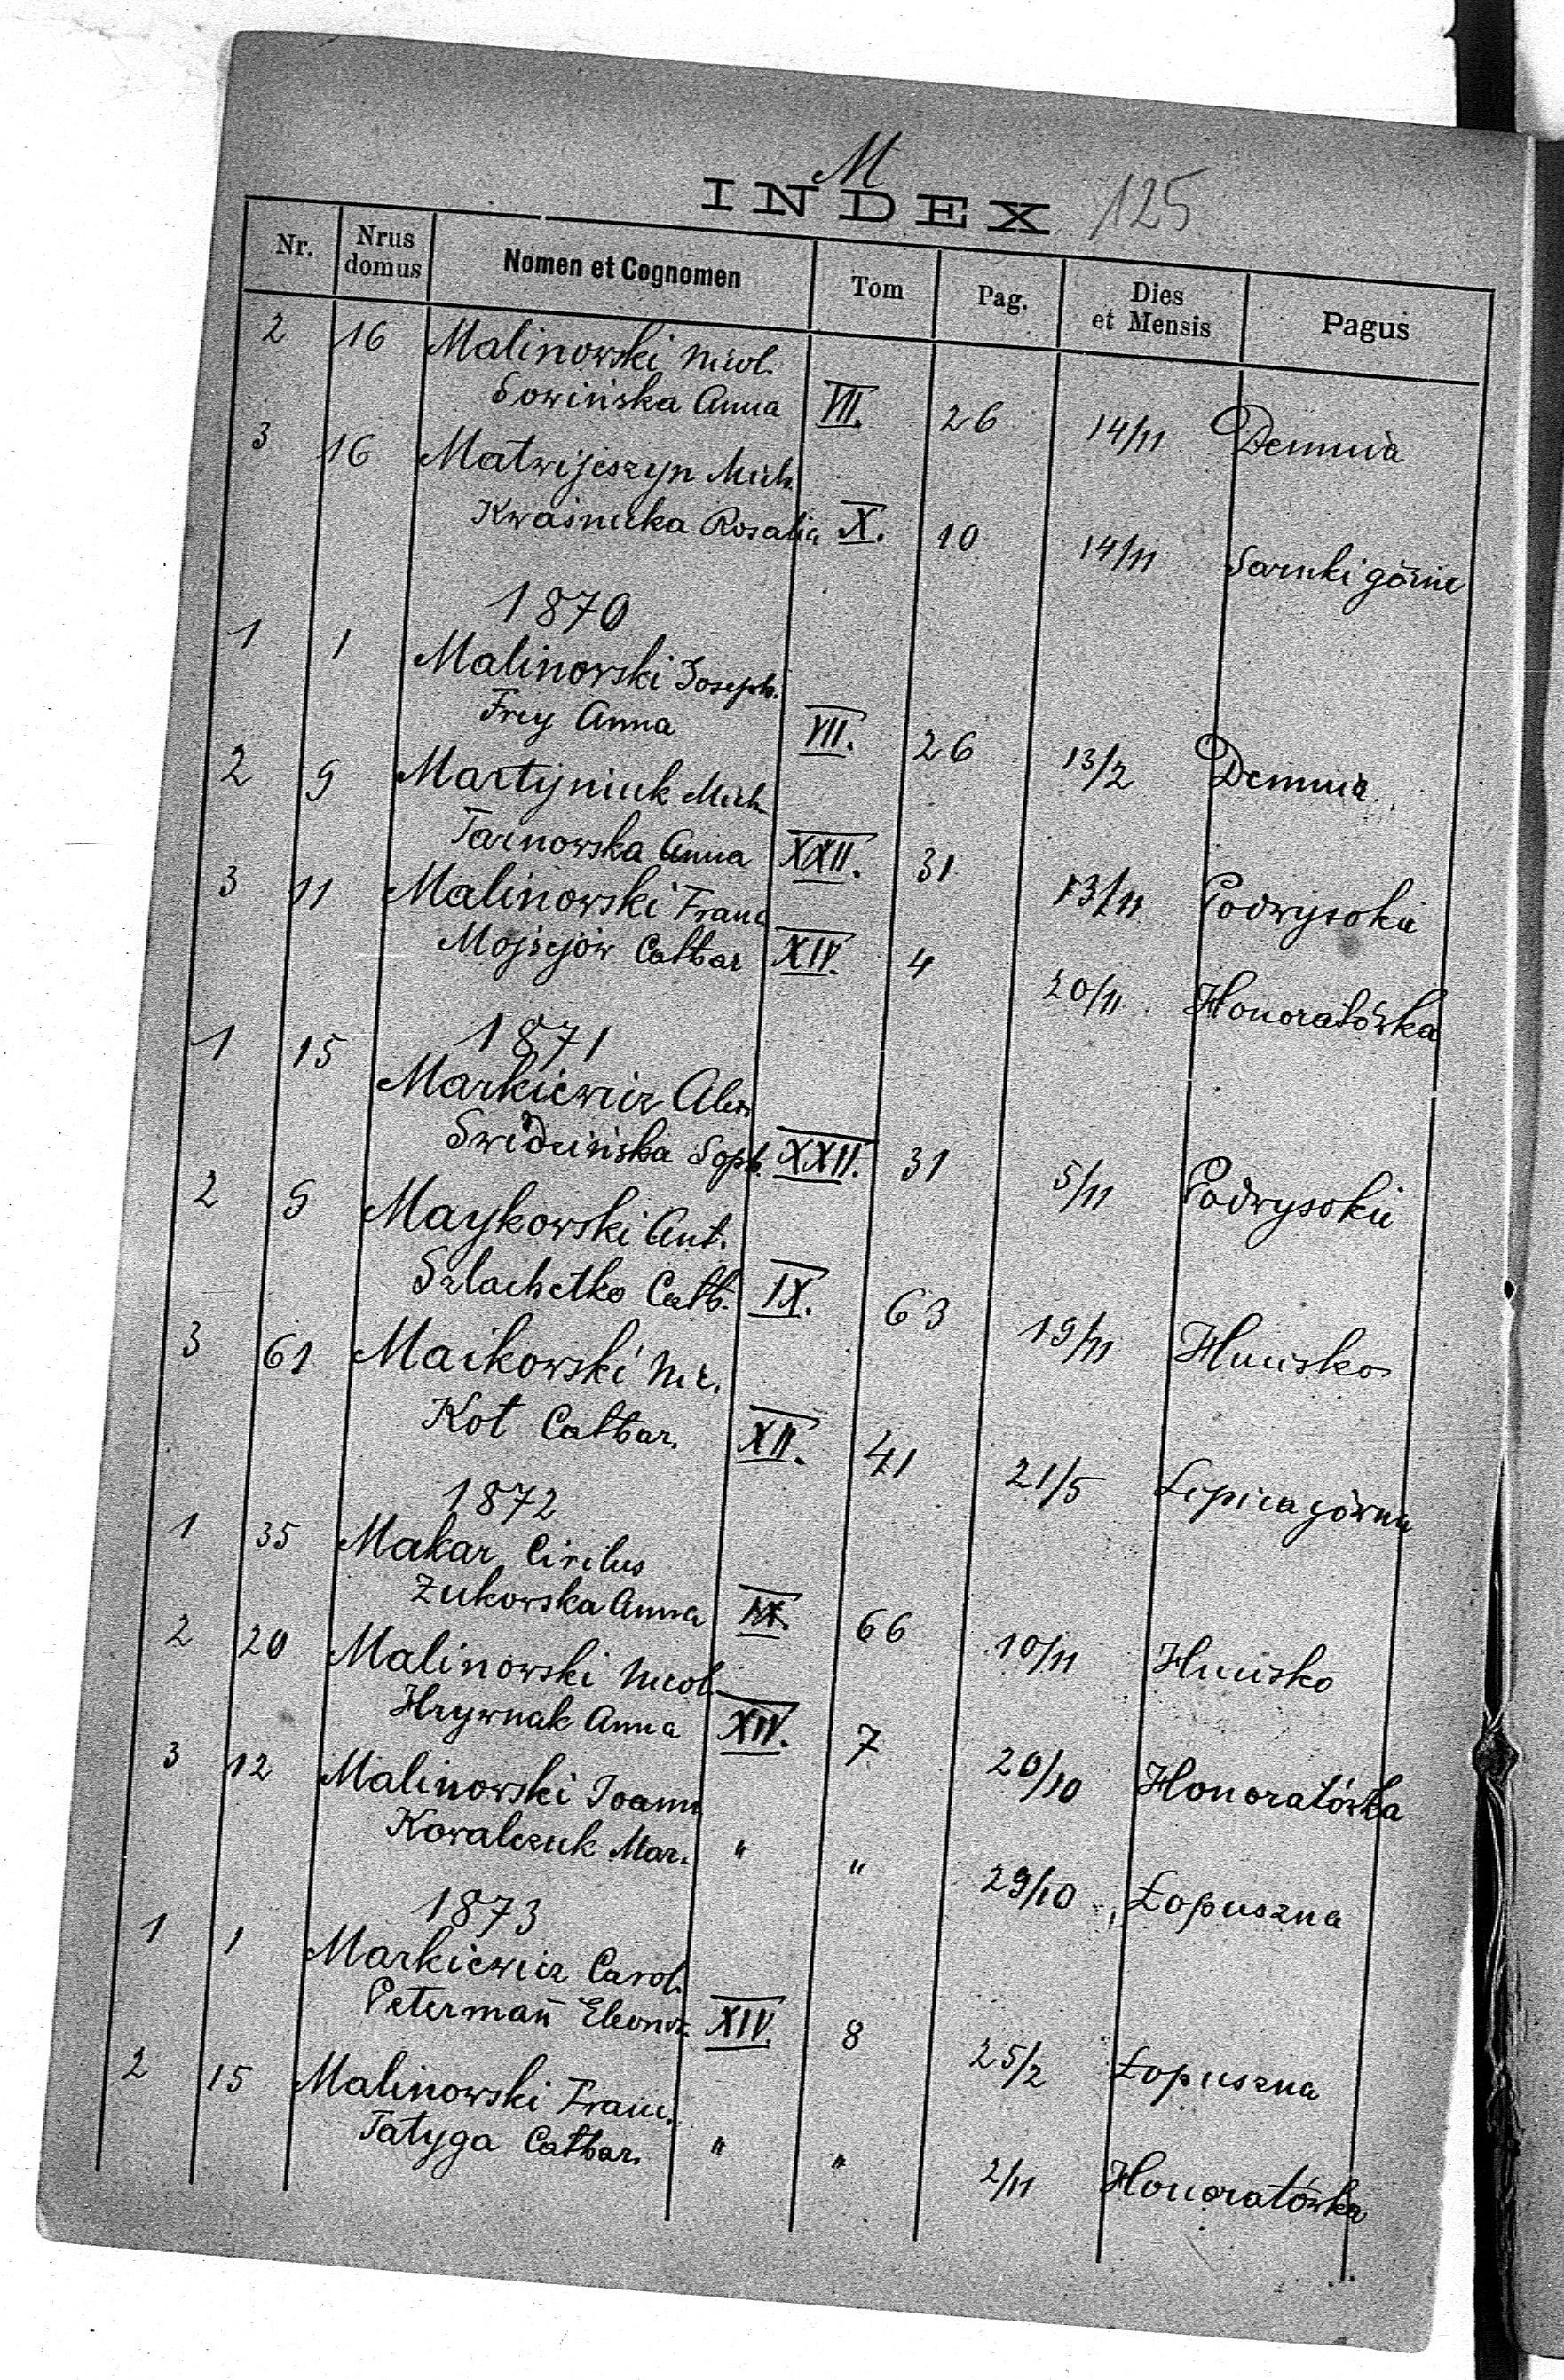 M
INDEX 125
Nr. Nrus domus Nomen et Cognomen Tom Pag. Dies et Mensis Pagus
2 16 Malinowski Nicol.
Sowińska Anna VII. 26 14/11 Demnia
3 16 Matwijeszyn Mich.
Kwaśnicka Rosalia X. 10 14/11 Sarnki górne
1870
1 1 Malinowski Joseph.
Frey Anna VII. 26 13/2 Demnia
2 9 Martyniuk Mich.
Tarnowska Anna XXII. 31 13/11 Podwysokie
3 11 Malinowski Franc
Mojsejów Cathar XIV. 4 20/11 Honoratówka
1871
1 15 Markiewicz Alex.
Swidcińska Soph. XXII. 31 5/11 Podwysokie
2 9 Maykowski Ant.
Szlachetko Cath. IX. 63 19/11 Hucisko
3 61 Maikowski
Kot Cathar. XII. 41 21/5 Lipica górna
1872
1 35 Makar Cirilus
Zukowska Anna IX. 66 10/11 Hucisko
2 20 Malinowski Nicol.
Hrywnak Anna XIV. 7 20/10 Honoratówka
3 12 Malinowski Joann
Kowalczuk Mar. " " 29/10 Łopuszna
1873
1 1 Markiewicz Carol.
Petermań Eleonor. XIV. 8 25/2 Łopuszna
2 15 Malinowski Franc.
Tatyga Cathar. " " 2/11 Honoratówka